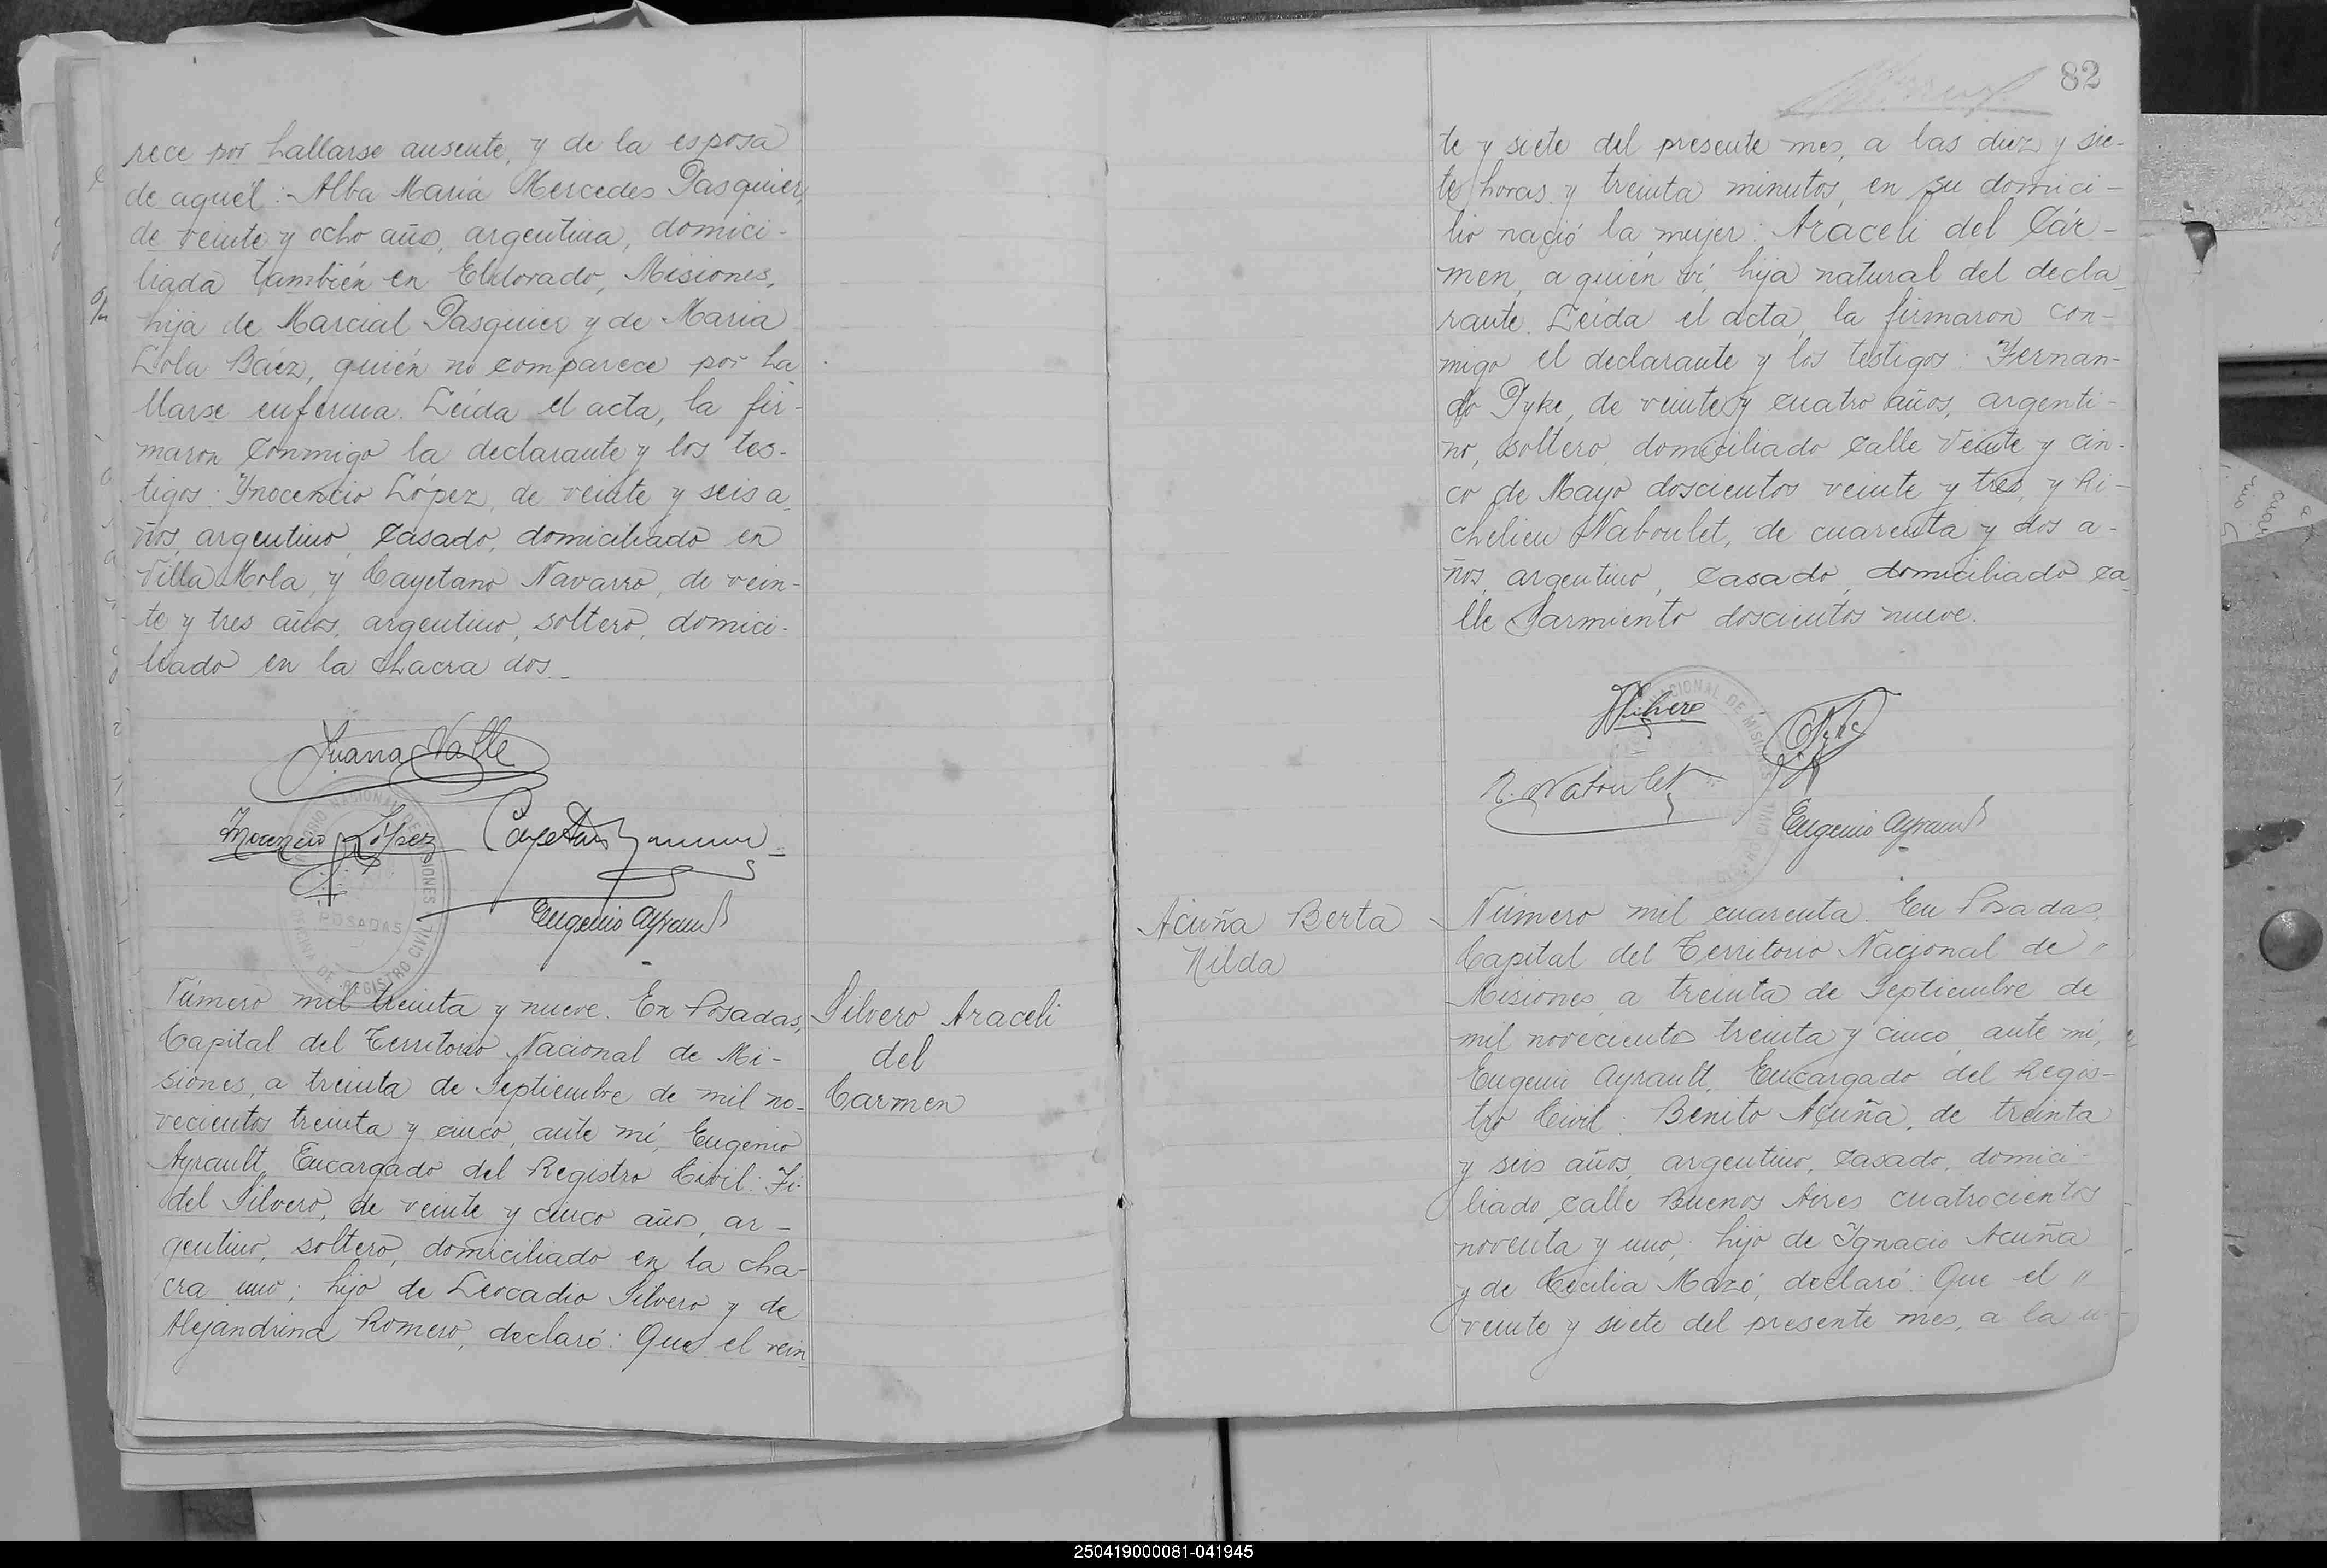 rece por hallarse ausente, y de la esposa
de aquél: Alba María Mercedes Pasquier,
de veinte y ocho años, argentina, domici-
liada también en Eldorado, Misiones,
hija de Marcial Pasquier y de María
Lola Báez, quién no comparece por ha
llarse enferma. Leída el acta, la fir-
maron conmigo la declarante y los tes-
tigos: Ynocencio López, de veinte y seis a
ños, argentino, casado, domiciliado en
Villa Mola, y Cayetano Navarro, de vein-
te y tres años, argentino, soltero, domici-
liado en la chacra dos.
Juana Valle
Inocencio López
Eugenio Ayrault
POSADAS
REGISTRO CIVIL
Número mil treinta y nueve. En Posadas,
Capital del Territorio Nacional de Mi-
siones, a treinta de Septiembre de mil no-
vecientos treinta y cinco, ante mí, Eugenio
Ayrault, Encargado del Registro Civil: Fi-
del Silvero, de veinte y cinco años, ar-
gentino, soltero, domiciliado en la cha-
cra uno; hijo de Leocadio Silvero y de
Alejandrina Romero, declaró: Que el vein
Silvero Araceli
del
Carmen
82
te y siete del presente mes, a las diez y sie-
te horas y treinta minutos, en su domici-
lio nació la mujer: Araceli del Cár-
men, a quién ví, hija natural del decla
rante. Leída el acta, la firmaron con-
migo el declarante y los testigos: Fernan-
do Tyke, de veinte y cuatro años, argenti-
no, soltero, domiciliado calle Veinte y cin-
co de Mayo doscientos veinte y tres, y Ri-
chelieu Naboulet, de cuarenta y dos a-
ños, argentino, casado, domiciliado ca
lle Sarmiento doscientos nueve.
FSilvero
R. Naboulet
Eugenio Ayrault
Acuña Berta
Nilda
Número mil cuarenta. En Posadas,
Capital del Territorio Nacional de "
Misiones, a treinta de Septiembre de
mil novecientos treinta y cinco, ante mí,
Eugenio Ayrault, Encargado del Regis-
tro Civil: Benito Acuña, de treinta
y seis años, argentino, casado, domici-
liado calle Buenos Aires cuatrocientos
noventa y uno; hijo de Ygnacio Acuña
y de Cecilia Mazó, declaró: Que el "
veinte y siete del presente mes, a la u-
250419000081-041945